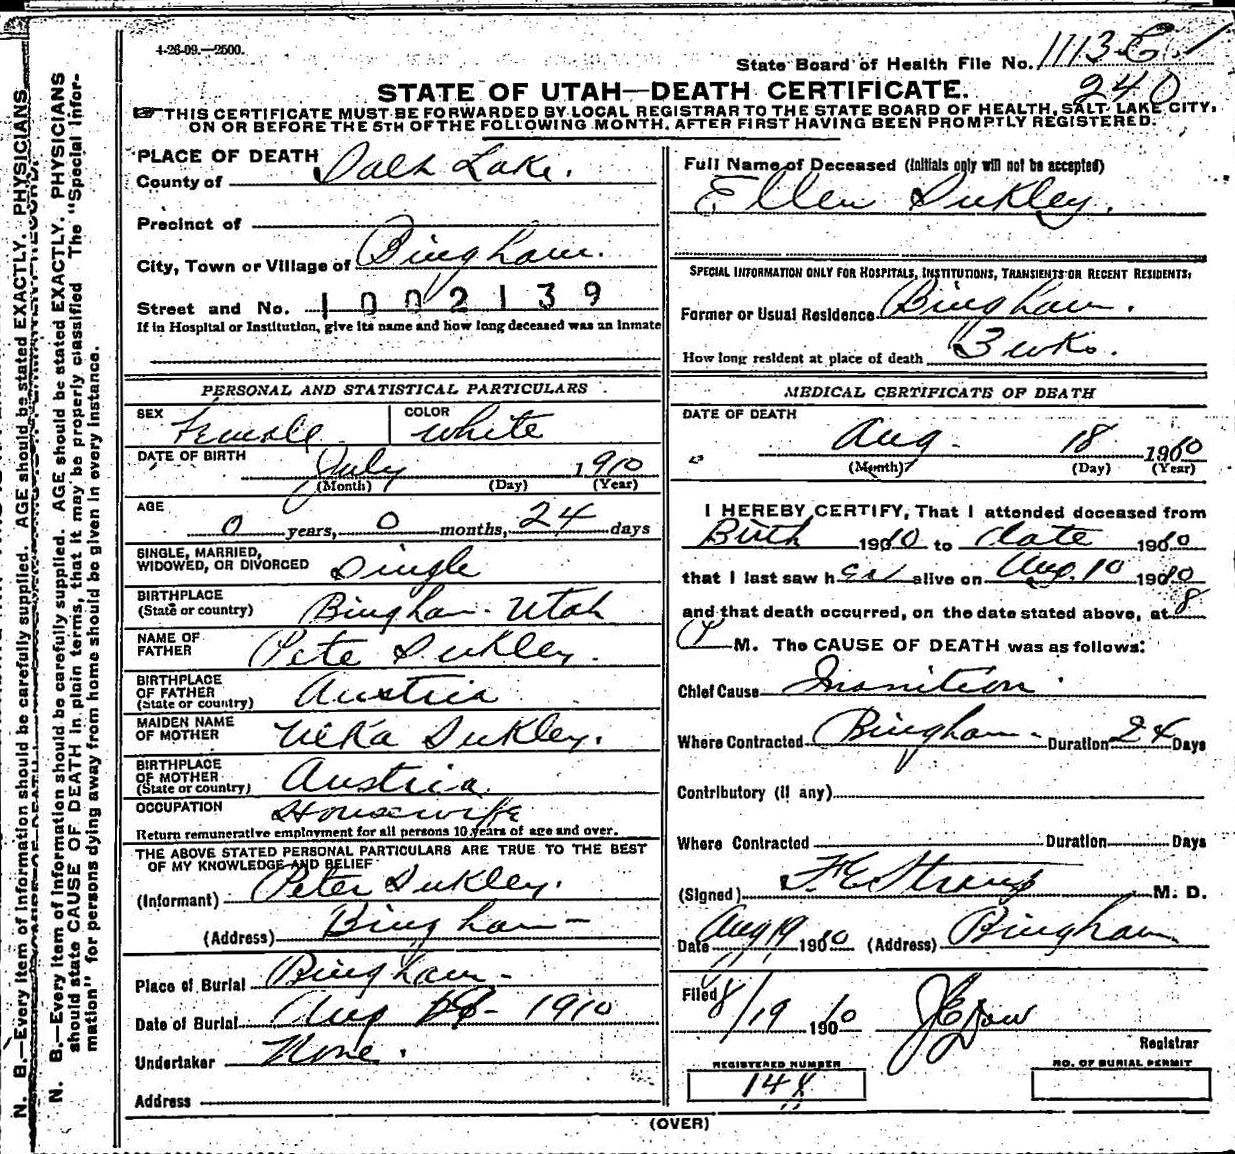 4-26-09.—2500.
State Board of Health File No. 1113
240
STATE OF UTAH—DEATH CERTIFICATE.
☞THIS CERTIFICATE MUST BE FORWARDED BY LOCAL REGISTRAR TO THE STATE BOARD OF HEALTH, SALT LAKE CITY,
ON OR BEFORE THE 5TH OF THE FOLLOWING MONTH, AFTER FIRST HAVING BEEN PROMPTLY REGISTERED.
PLACE OF DEATH
County of Salt Lake.
Precinct of
City, Town or Village of Bingham.
Street and No. 1002139
If in Hospital or Institution, give its name and how long deceased was an inmate
PERSONAL AND STATISTICAL PARTICULARS
SEX Female
COLOR White
DATE OF BIRTH July 1910
(Month) (Day) (Year)
AGE
0 years, 0 months, 24 days
SINGLE, MARRIED,
WIDOWED, OR DIVORCED Single
BIRTHPLACE
(State or country) Bingham. Utah
NAME OF
FATHER Pete Dukley.
BIRTHPLACE
OF FATHER
(State or country) Austria
MAIDEN NAME
OF MOTHER Dukley.
BIRTHPLACE
OF MOTHER
(State or country) Austria
OCCUPATION Housewife
Return remunerative employment for all persons 10 years of age and over.
THE ABOVE STATED PERSONAL PARTICULARS ARE TRUE TO THE BEST
OF MY KNOWLEDGE AND BELIEF
(Informant) Peter Dukley.
(Address) Bingham
Place of Burial Bingham
Date of Burial Aug 1910
Undertaker None.
Address
Full Name of Deceased (Initials only will not be accepted)
Ellen Dukley.
SPECIAL INFORMATION ONLY FOR HOSPITALS, INSTITUTIONS, TRANSIENTS OR RECENT RESIDENTS:
Former or Usual Residence Bingham.
How long resident at place of death 3 wks.
MEDICAL CERTIFICATE OF DEATH
DATE OF DEATH
Aug. 18 1910
(Month) (Day) (Year)
I HEREBY CERTIFY, That I attended deceased from
Birth 1910 to date 1910
that I last saw her alive on Aug. 10 1910
and that death occurred, on the date stated above, at 8
P M. The CAUSE OF DEATH was as follows:
Chief Cause Inanition.
Where Contracted Bingham Duration 24 Days
Contributory (if any)
Where Contracted Duration Days
(Signed) F. E. Straup M. D.
Date Aug 19 1910 (Address) Bingham
Filed 8/19 1910 Registrar
REGISTERED NUMBER
148
NO. OF BURIAL PERMIT
(OVER)
N. B.—Every item of information should be carefully supplied. AGE should be stated EXACTLY. PHYSICIANS
N. B.—Every item of information should be carefully supplied. AGE should be stated EXACTLY. PHYSICIANS
should state CAUSE OF DEATH in plain terms, that it may be properly classified. The "Special Infor-
mation" for persons dying away from home should be given in every instance.